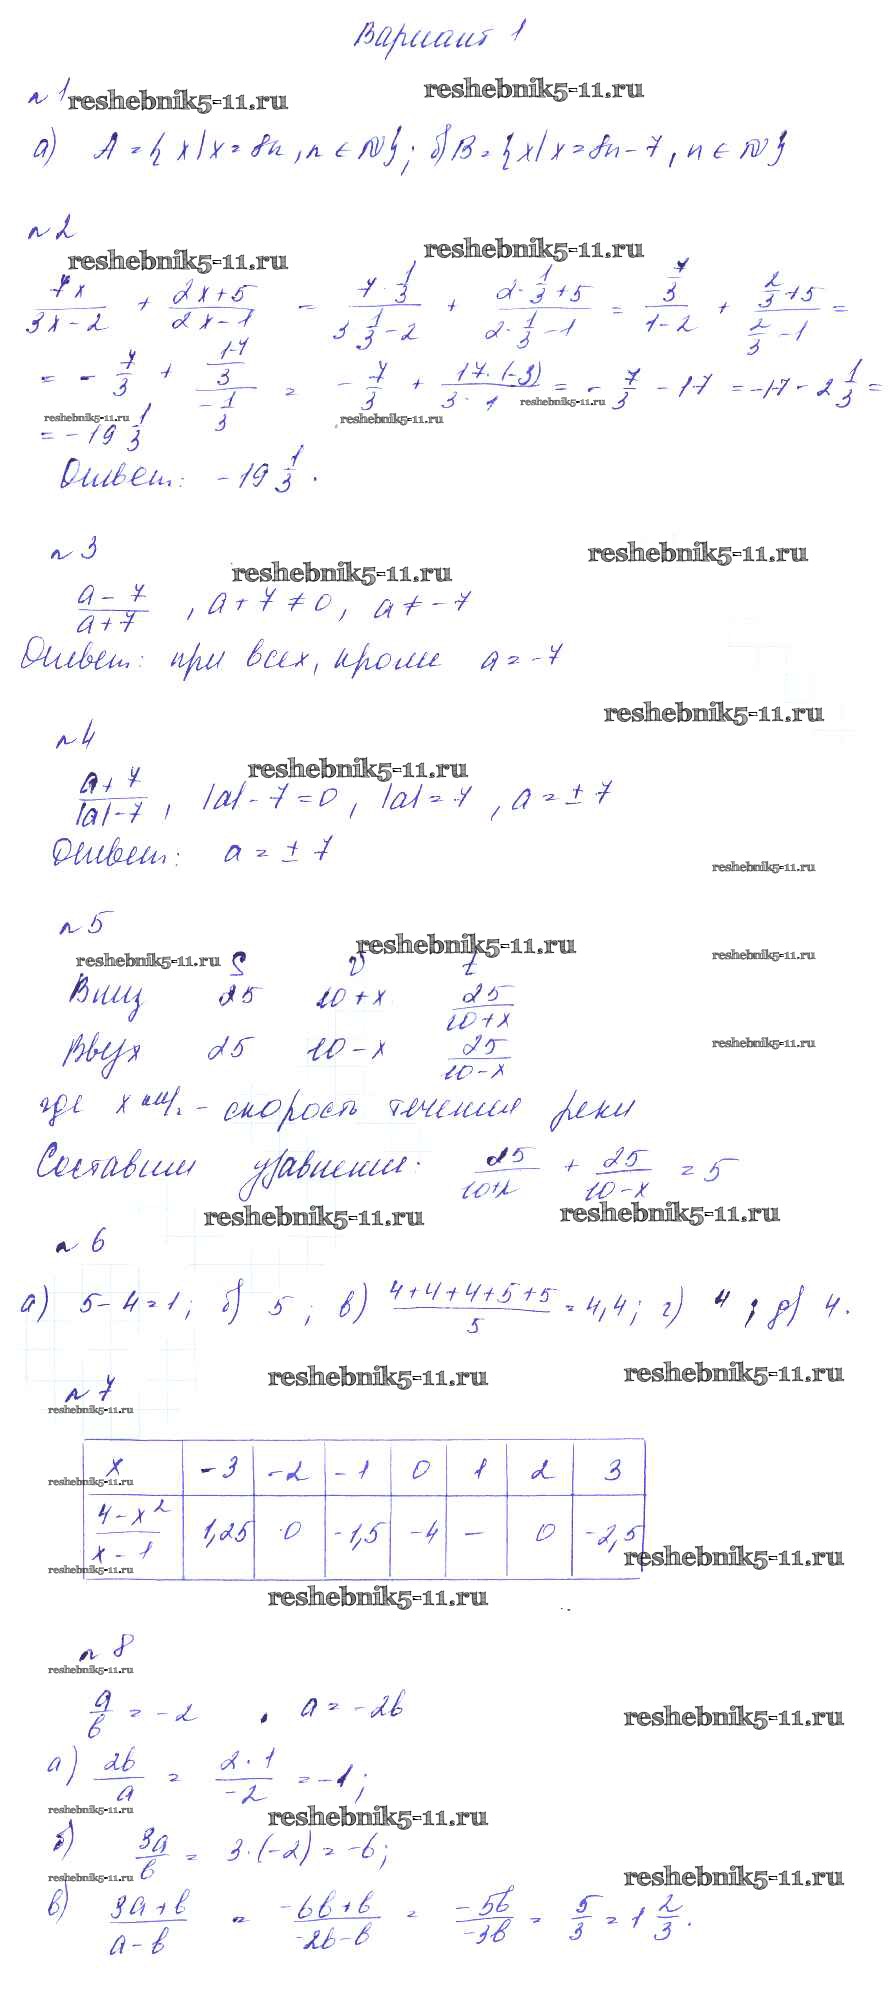 Вариант 1
№1
reshebnik5-11.ru reshebnik5-11.ru
а) A = { x | x = 8n, n ∈ N }; б) B = { x | x = 8n - 7, n ∈ N }
№2
reshebnik5-11.ru reshebnik5-11.ru
7x/(3x-2) + (2x+5)/(2x-1) = (7·1/3)/(3·1/3-2) + (2·1/3+5)/(2·1/3-1) = (7/3)/(1-2) + (2/3+5)/(2/3-1) =
= -7/3 + (17/3)/(-1/3) = -7/3 + 17·(-3)/(3·1) = -7/3 - 17 = -17 - 2 1/3 =
reshebnik5-11.ru reshebnik5-11.ru reshebnik5-11.ru
= -19 1/3
Ответ: -19 1/3.
№3
reshebnik5-11.ru reshebnik5-11.ru
(a-7)/(a+7), a+7 ≠ 0, a ≠ -7
Ответ: при всех, кроме a = -7
reshebnik5-11.ru
№4
reshebnik5-11.ru
(a+7)/(|a|-7), |a| - 7 = 0, |a| = 7, a = ± 7
Ответ: a = ± 7
reshebnik5-11.ru
№5
reshebnik5-11.ru reshebnik5-11.ru reshebnik5-11.ru
S v t
Вниз 25 10+x 25/(10+x)
Вверх 25 10-x 25/(10-x)
reshebnik5-11.ru
где x км/ч - скорость течения реки
Составим уравнение: 25/(10+x) + 25/(10-x) = 5
reshebnik5-11.ru reshebnik5-11.ru
№6
а) 5-4=1; б) 5; в) (4+4+4+5+5)/5 = 4,4; г) 4; д) 4.
reshebnik5-11.ru reshebnik5-11.ru
№7
reshebnik5-11.ru
x -3 -2 -1 0 1 2 3
reshebnik5-11.ru
(4-x²)/(x-1) 1,25 0 -1,5 -4 — 0 -2,5
reshebnik5-11.ru reshebnik5-11.ru
reshebnik5-11.ru
№8
reshebnik5-11.ru
a/b = -2 . a = -2b
reshebnik5-11.ru
а) 2b/a = 2·1/-2 = -1;
reshebnik5-11.ru reshebnik5-11.ru
б) 3a/b = 3·(-2) = -6;
reshebnik5-11.ru reshebnik5-11.ru
в) (3a+b)/(a-b) = (-6b+b)/(-2b-b) = -5b/-3b = 5/3 = 1 2/3.